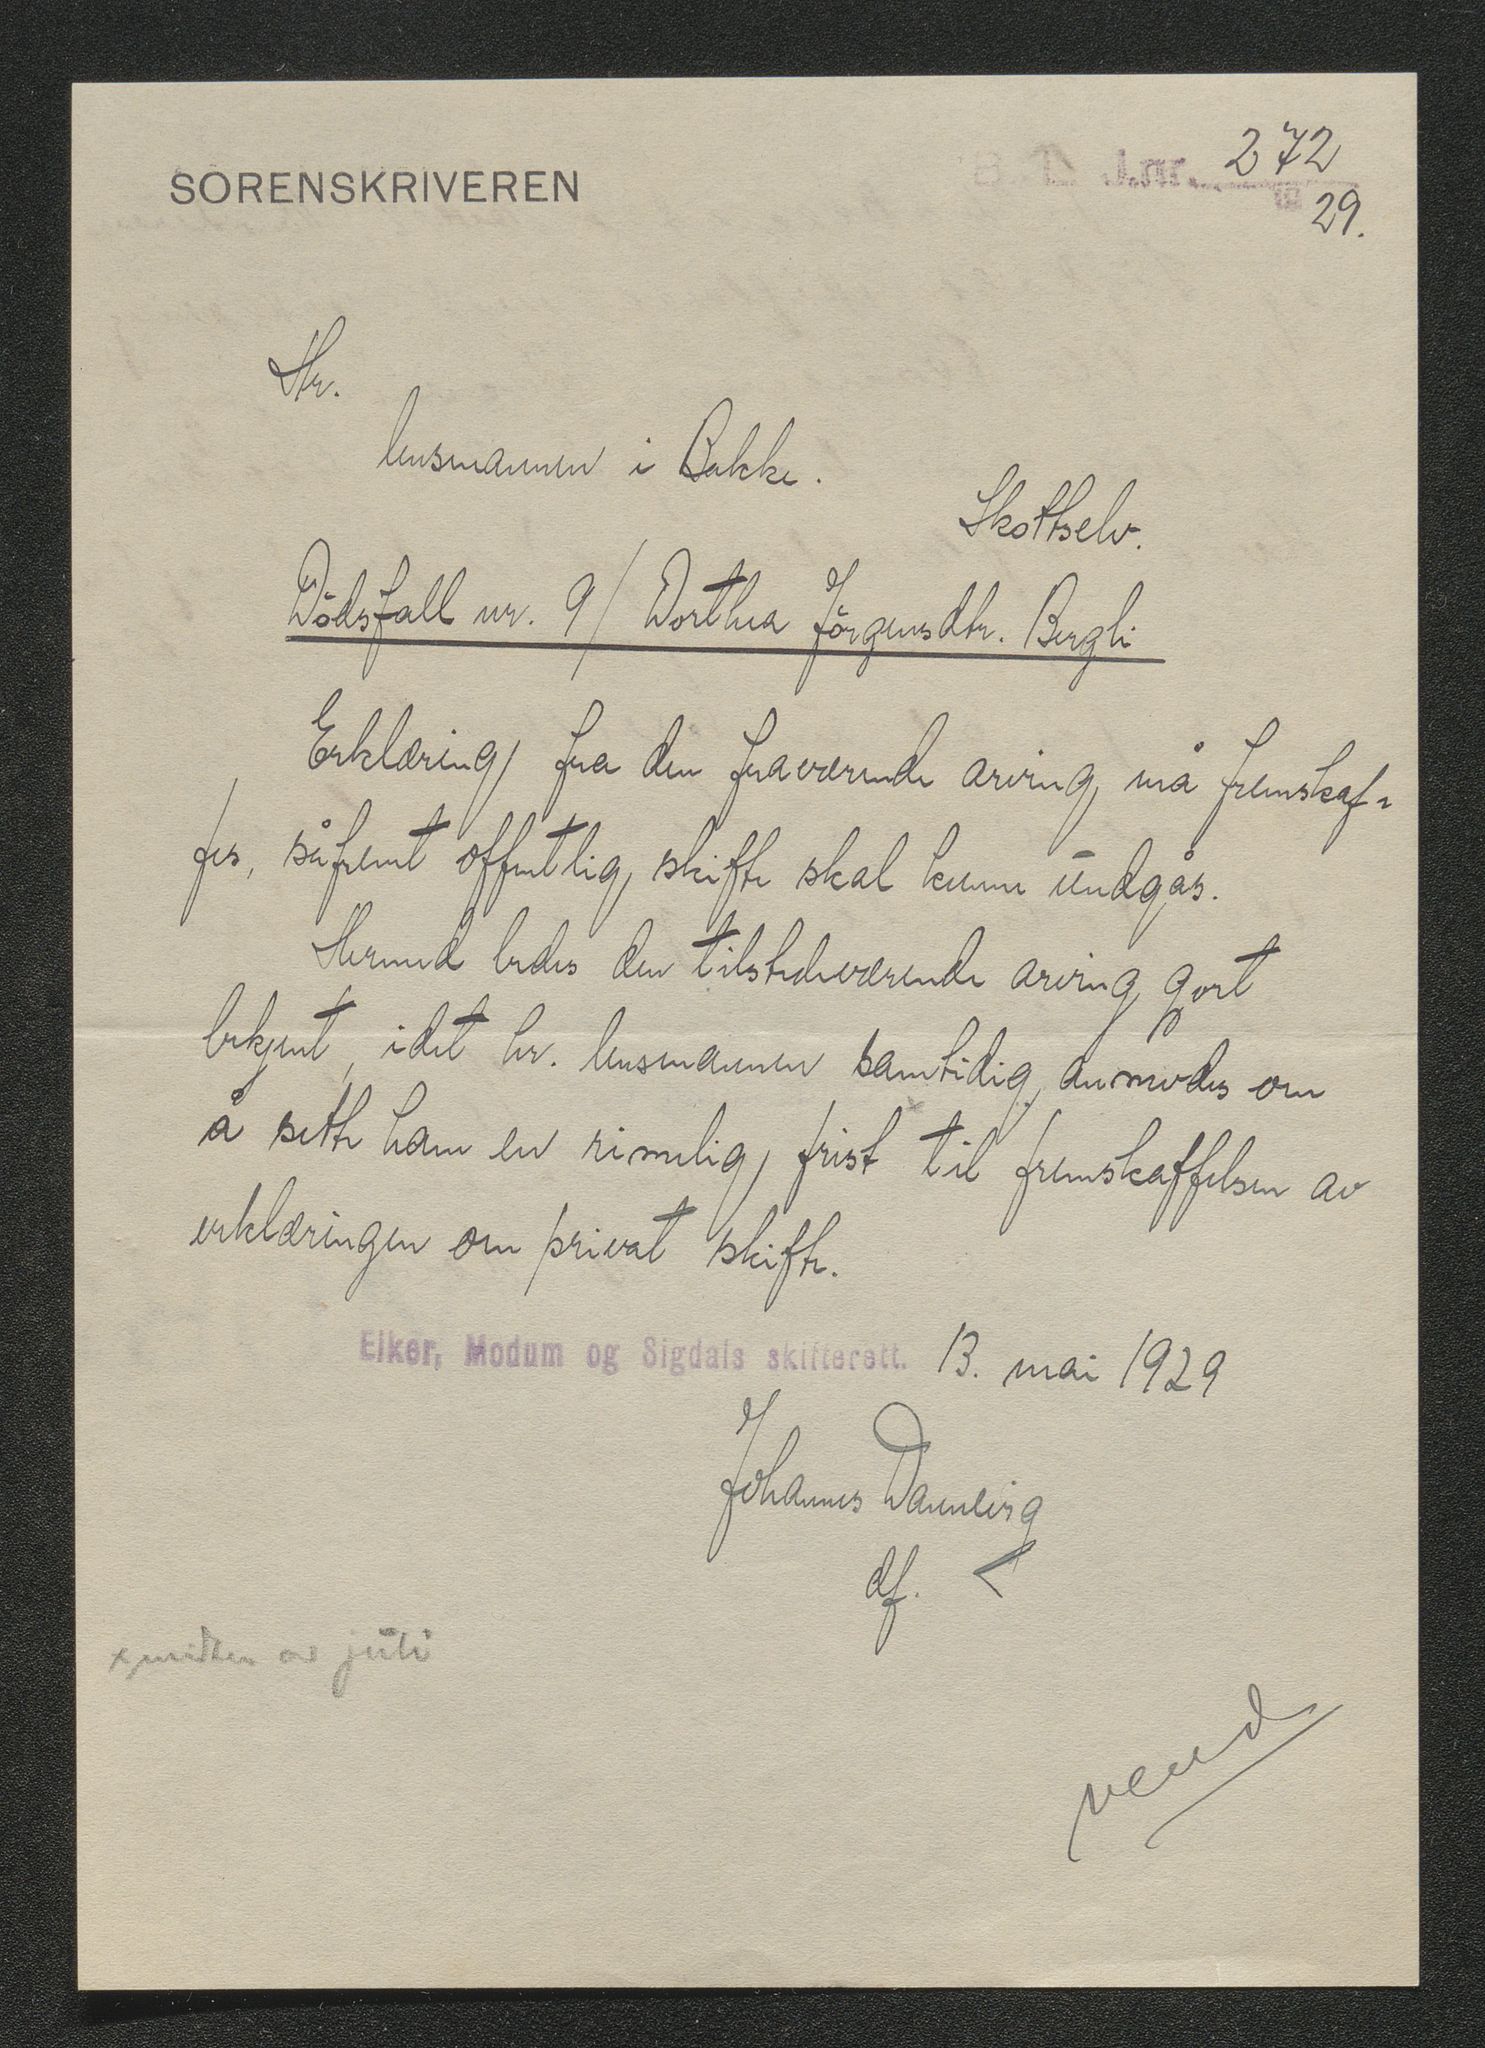 SORENSKRIVEREN
J.nr. 272
29.
Hr.
lensmannen i Bakke.
Skottselv.
Dødsfall nr. 9/ Dorthea Jörgensdtr. Bergli
Erklæring fra den fraværende arving må fremskaf-
fes, såfremt offentlig skifte skal kunne undgåes.
Hermed bedes den tilstedeværende arving gjort
bekjent, idet hr. lensmannen samtidig anmodes om
å sette ham en rimelig frist til fremskaffelsen av
erklæringen om privat skifte.
Eiker, Modum og Sigdals skifterett. 13. mai 1929
Johannes
df.
x midten av juli
vend